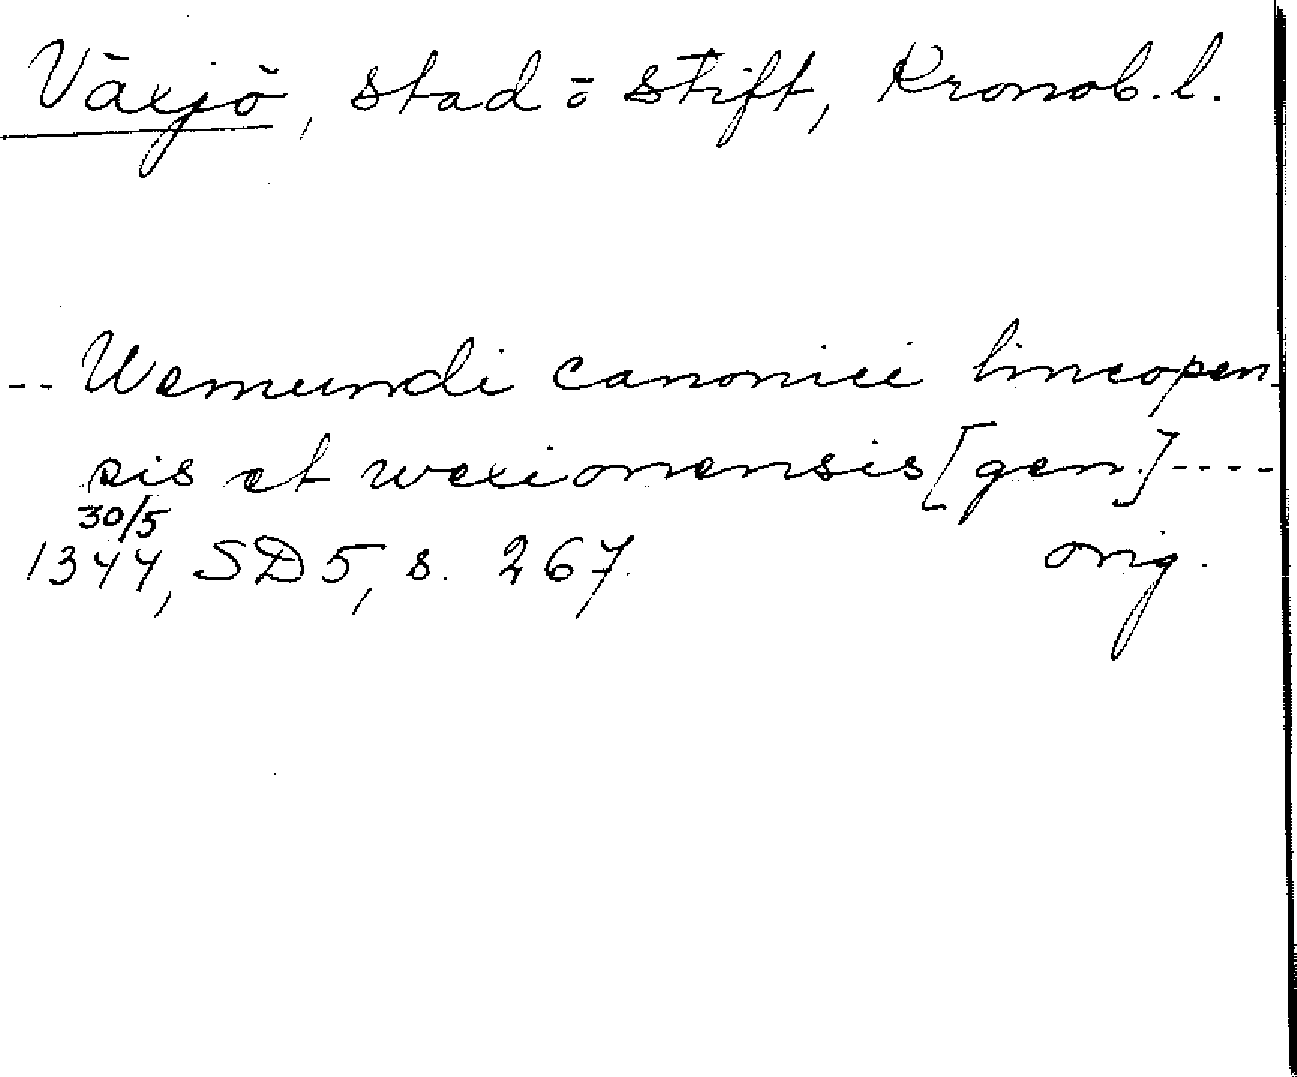 Växjö, stad o stift, Kronob. l.
-- Wemundi canonici lincopen-
sis et wexionensis [gen.] ----
30/5
1344, SD 5, s. 267. orig.